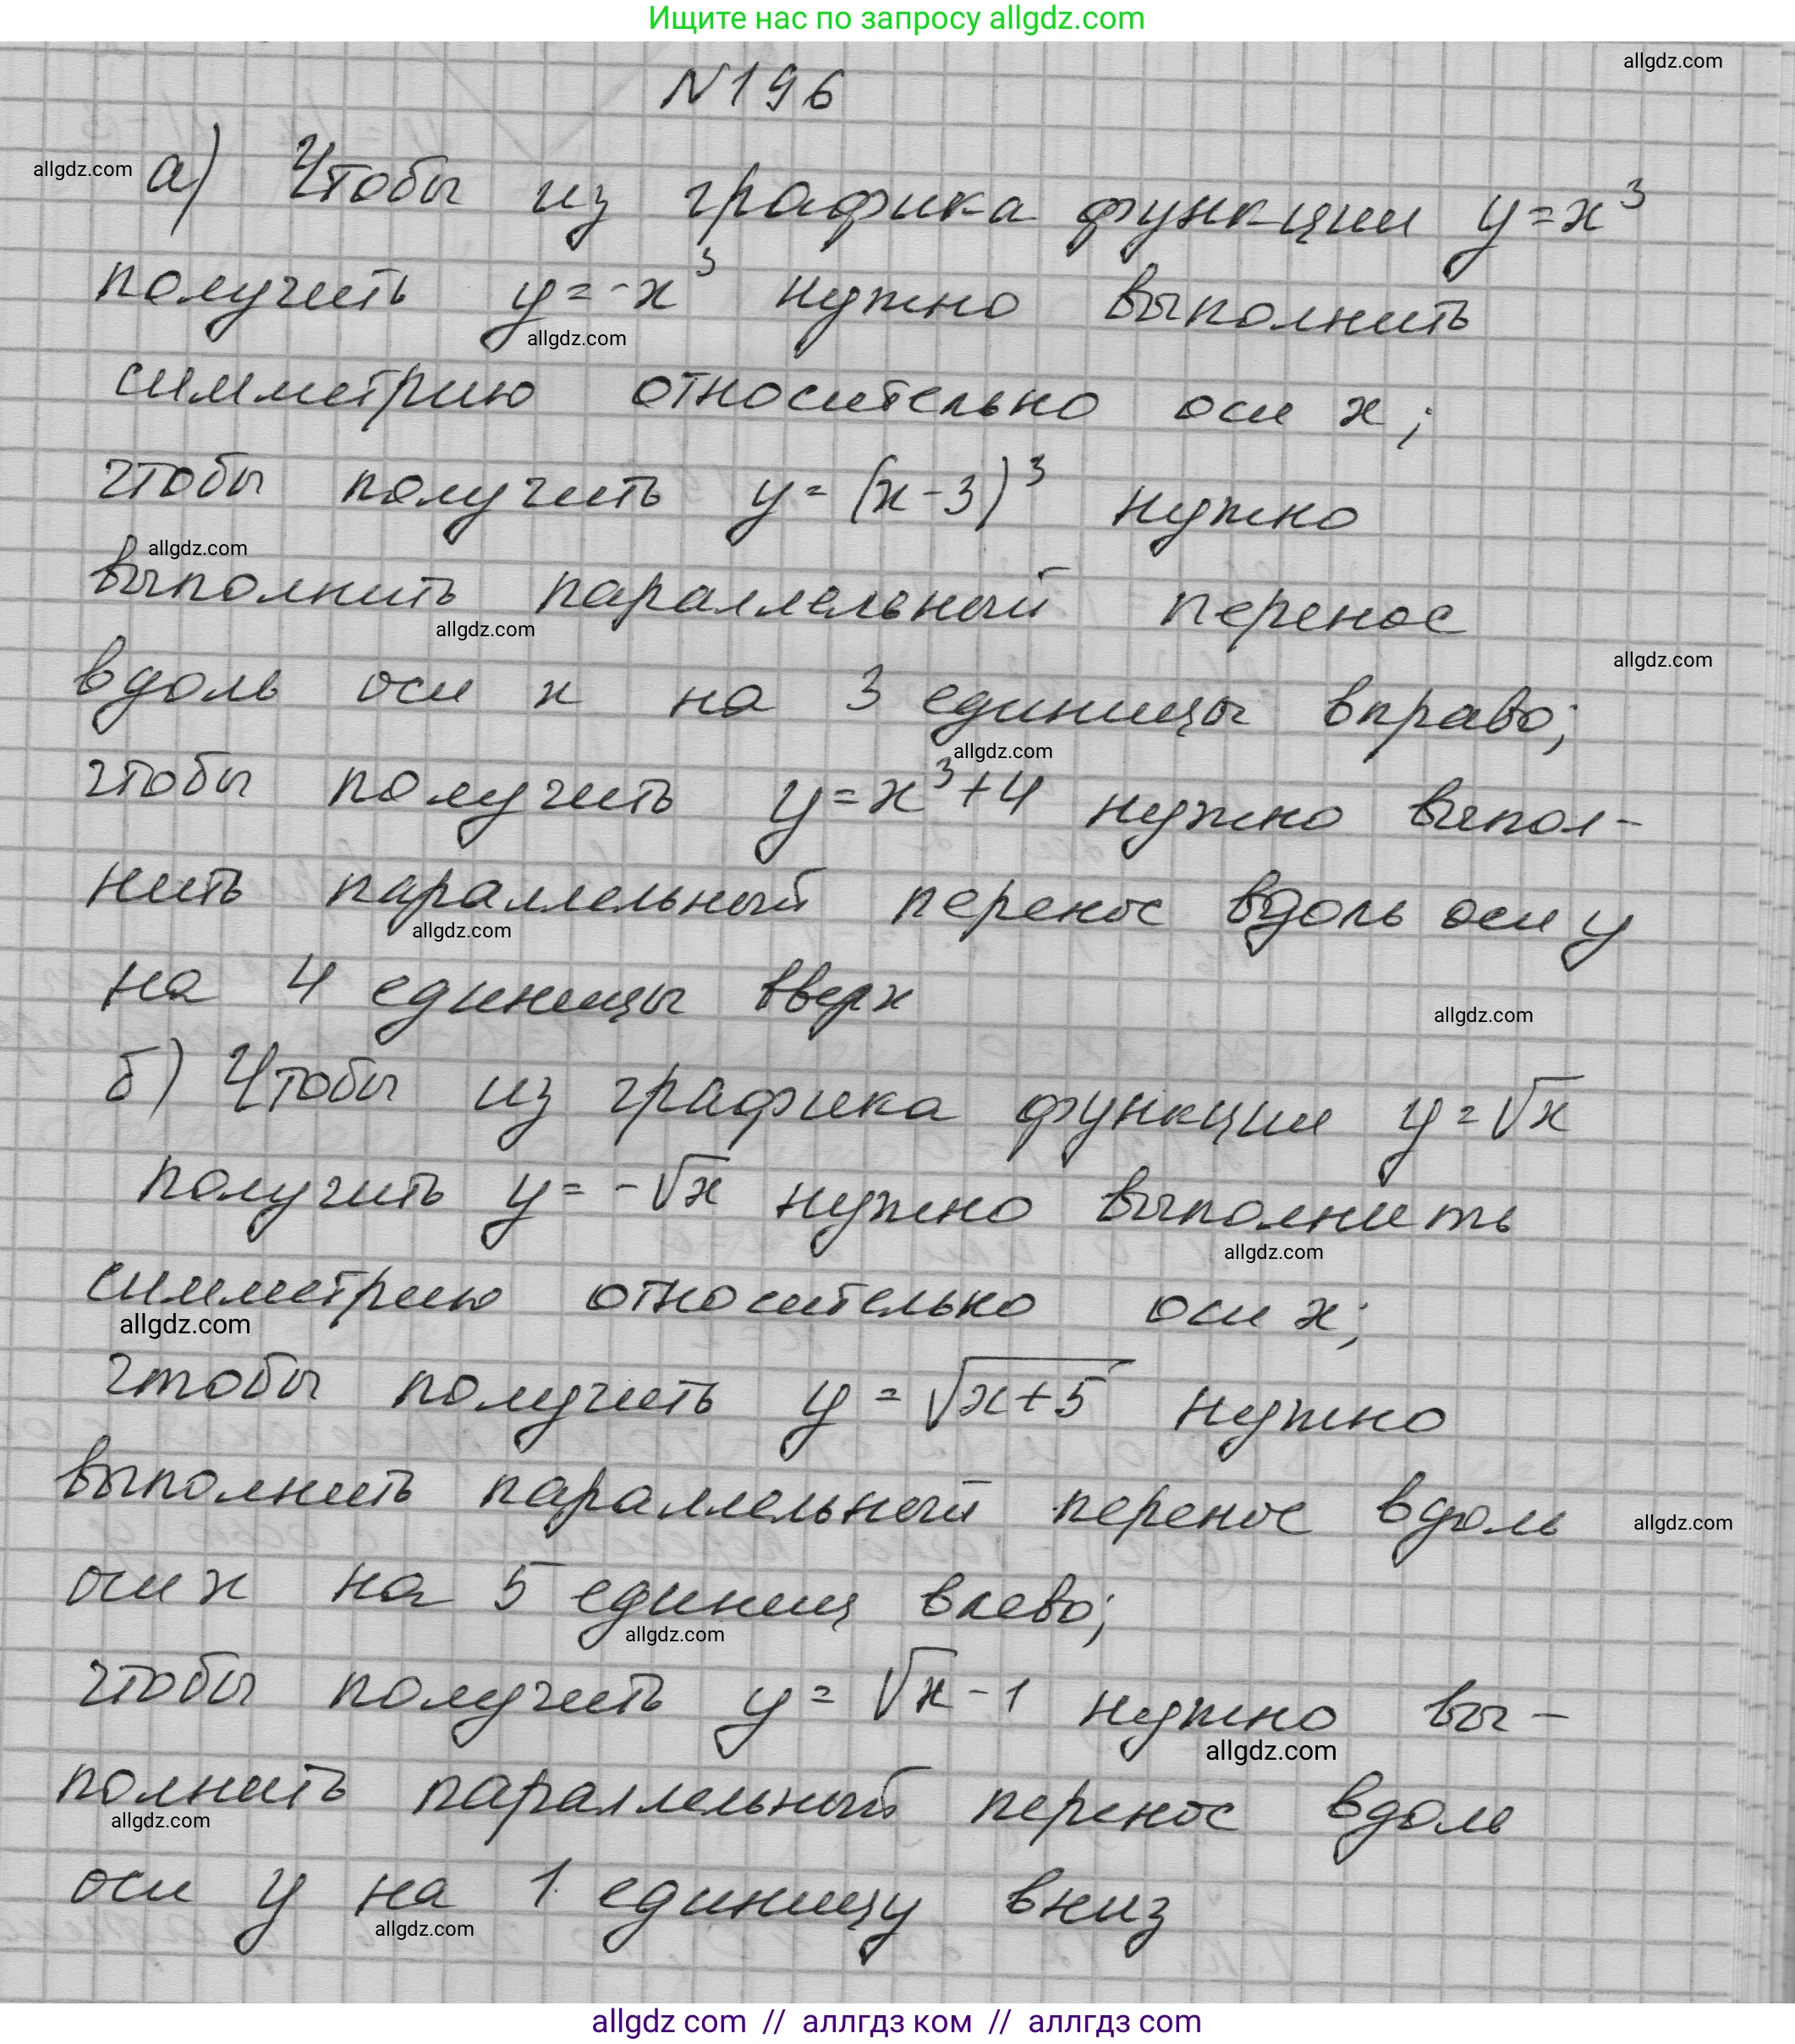 Ищите нас по запросу allgdz.com
allgdz.com
N196
allgdz.com
а) Чтобы из графика функции y=x³
получить y=-x³ нужно выполнить
allgdz.com
симметрию относительно оси x;
чтобы получить y=(x-3)³ нужно
allgdz.com
выполнить параллельный перенос
allgdz.com
allgdz.com
вдоль оси x на 3 единицы вправо;
allgdz.com
чтобы получить y=x³+4 нужно выпол-
нить параллельный перенос вдоль оси y
allgdz.com
на 4 единицы вверх
allgdz.com
б) Чтобы из графика функции y=√x
получить y=-√x нужно выполнить
allgdz.com
симметрию относительно оси x;
allgdz.com
чтобы получить y=√x+5 нужно
выполнить параллельный перенос вдоль
allgdz.com
оси x на 5 единиц влево;
allgdz.com
чтобы получить y=√x-1 нужно вы-
allgdz.com
полнить параллельный перенос вдоль
allgdz.com
оси y на 1 единицу вниз
allgdz.com
allgdz com // аллгдз ком // аллгдз com